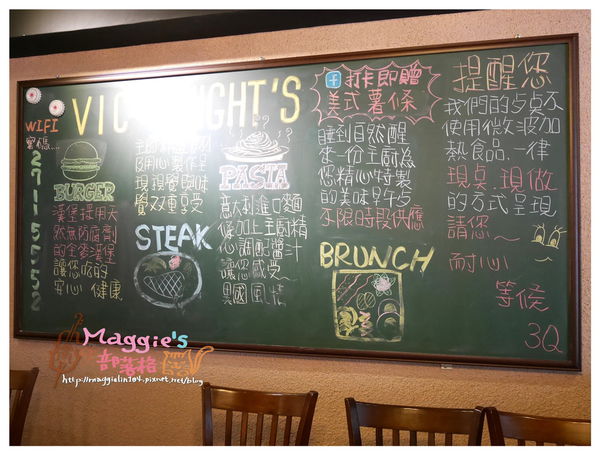 WIFI
密碼...
27115552
BURGER
漢堡採用天
然無防腐劑
的全麥漢堡
讓您吃的
安心 健康
覺双重享受
STEAK
PASTA
意大利進口麵
條加上主廚精
心調配醬汁
讓您感受~
異國風情
打卡即贈
美式薯條
睡到自然醒
來一份主廚為
您精心特製
的美味早午点
不限時段供應
BRUNCH
提醒您
我們的点點不
使用微波加
熱食品.一律
現点.現做
的方式呈現
請您~
耐心
等候
3Q
Maggie's
部落格
http://maggielin104.pixnet.net/blog